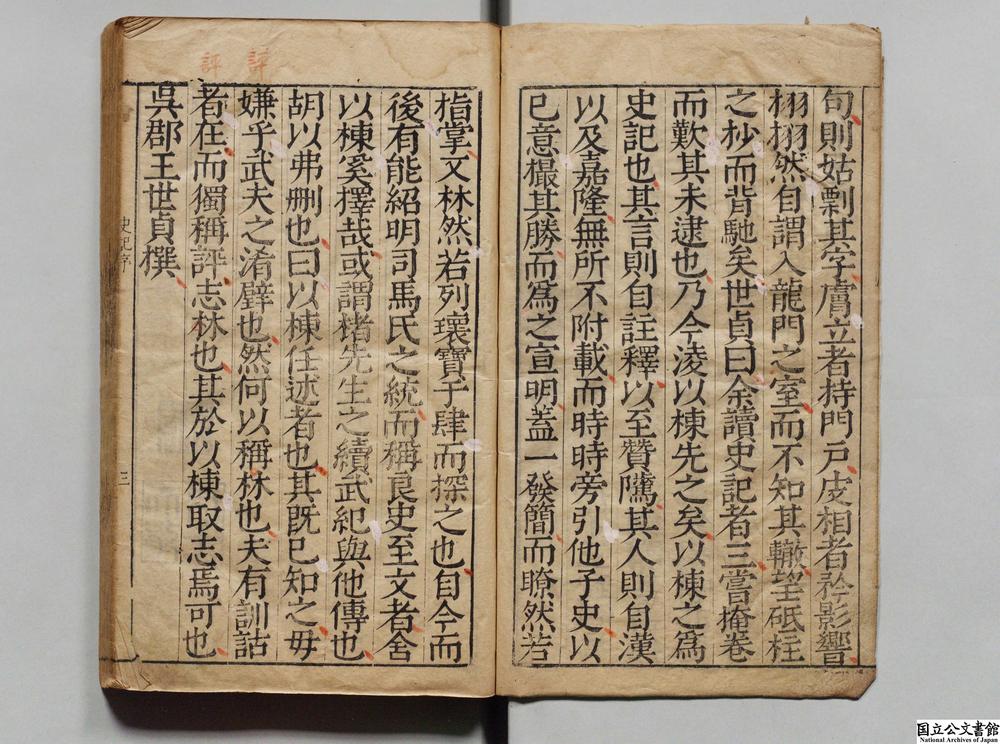 句則姑剽其字膚立者持門戸皮相者矜影響
栩栩然自謂入龍門之室而不知其轍望砥柱
之杪而背馳矣世貞曰余讀史記者三嘗掩卷
而歎其未逮也乃今淩以棟先之矣以棟之爲
史記也其言則自註釋以至贊隲其人則自漢
以及嘉隆無所不附載而時時旁引他子史以
已意撮其勝而爲之宣明蓋一發簡而瞭然若
指掌又林然若列瓌寶于肆而探之也自今而
後有能紹明司馬氏之統而稱良史至文者舍
以棟奚擇哉或謂楮先生之續武紀與他傳也
胡以弗刪也曰以棟任述者也其旣已知之毋
嫌乎武夫之淆璧也然何以稱林也夫有訓詁
者在而獨稱評志林也其於以棟取志焉可也
吳郡王世貞撰
評
評
史記序
三
国立公文書館
National Archives of Japan